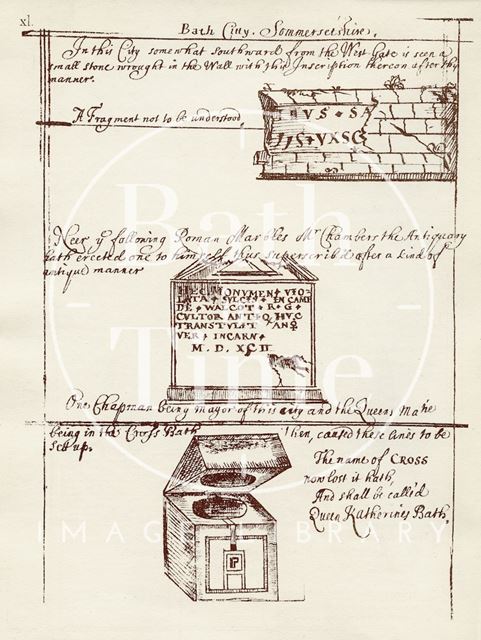 xl.
Bath Citty. Sommersetshire.
In this City somewhat southward from the West Gate is seen a
small stone wrought in the Wall with this Inscription thereon after this
manner.
A Fragment not to be understood,
VS SA
IS VXSC
Neer ye following Roman Marbles Mr Chambers the Antiquary
hath erected one to himself thus superscrib'd after a kind of
antique manner
HEC MONVMEN VIO
LATA SVLCIS EN CAMP
DE WALCOT R G
CVLTOR ANTIQ HVC
TRANSTVLIT ANO
VER INCARN
M. D. XC II
One Chapman being mayor of this city and the Queens Matie
being in the Cross Bath then, caused these lines to be
sett up.
The name of CROSS
now lost it hath,
And shall be called
Queen Katherines Bath.
Bath
in
Time
IMAGE LIBRARY